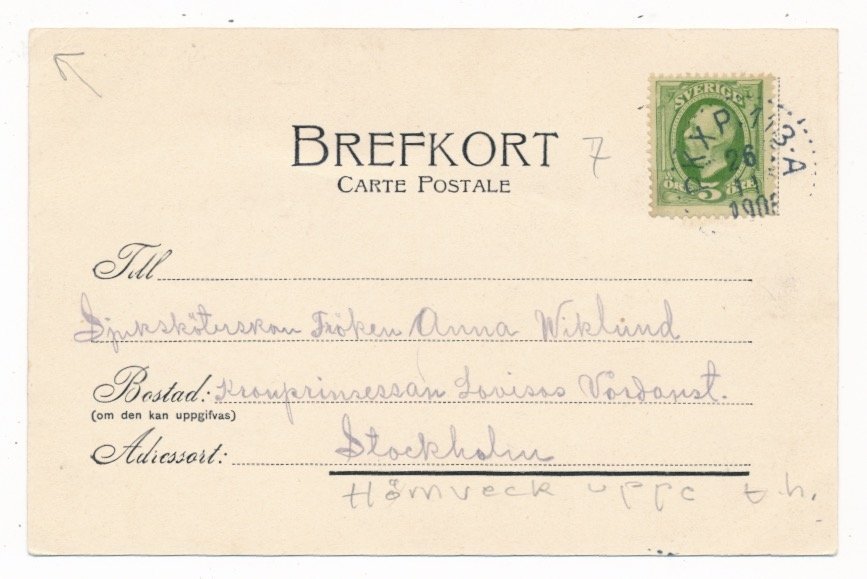 BREFKORT 7
CARTE POSTALE
SVERIGE
ÖRE 5 ÖRE
PKXP.113.A
26
11
Till
Sjuksköterskan Fröken Anna Wiklund
Bostad: Kronprinsessan Lovisas Vårdanst.
(om den kan uppgifvas)
Adressort: Stockholm
Hörnveck uppe t.h.